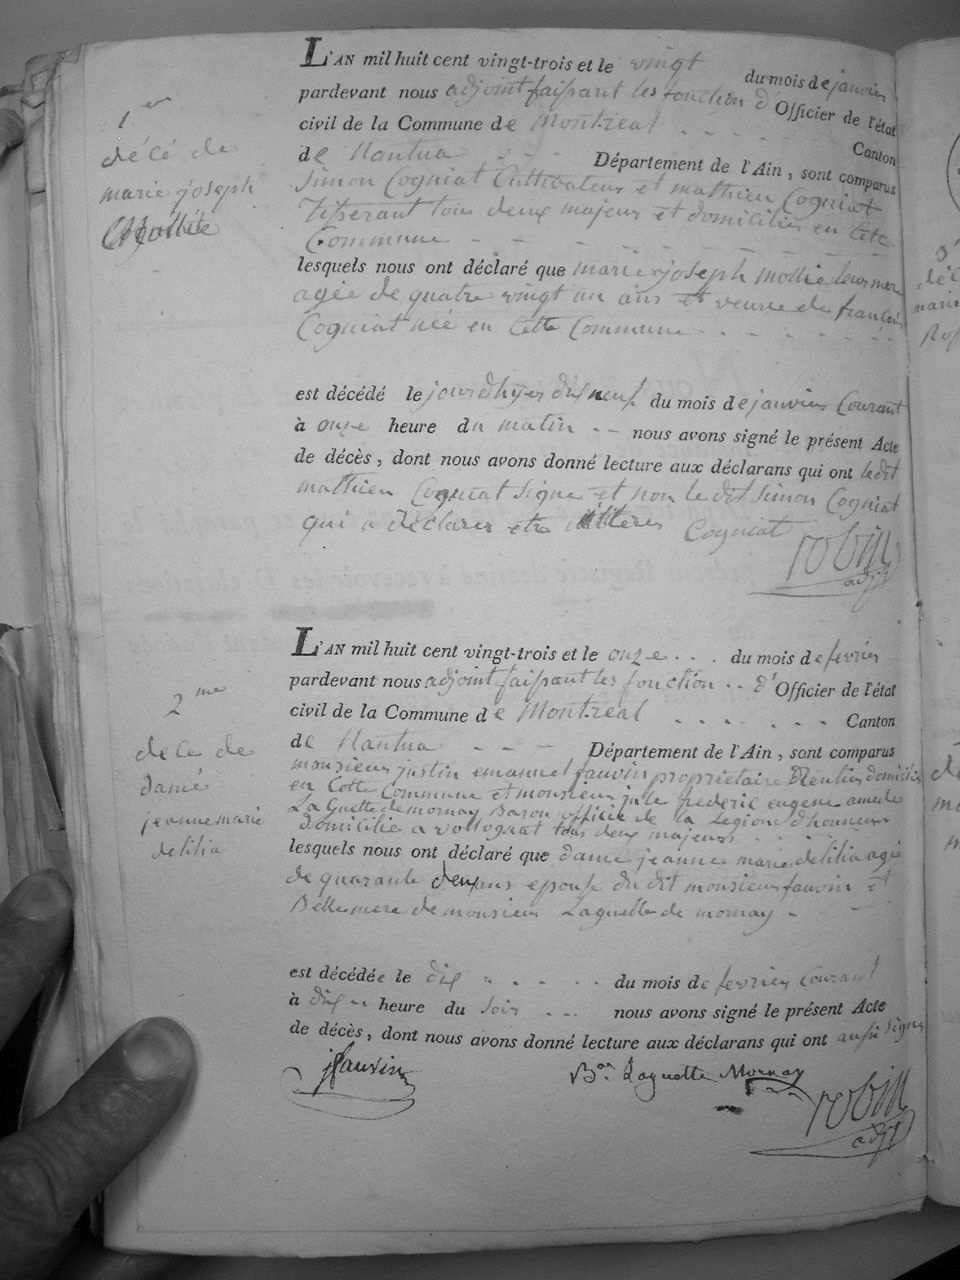 L'AN mil huit cent vingt-trois et le vingt du mois de janvier
pardevant nous adjoint faisant les fonction d'Officier de l'état
civil de la Commune de Montreal Canton
de Nantua Département de l'Ain, sont comparus
Simon Cogniat Cultivateur et mathieu Cogniat
Tisserant tous deux majeur et domiciliés en cette
Commune
lesquels nous ont déclaré que marie joseph mollie leur mere
agée de quatre vingt un ans et veuve de francois
Cogniat née en Cette Commune
est décédé le jourdhyer dix neuf du mois de janvier Courant
à onze heure du matin nous avons signé le présent Acte
de décès, dont nous avons donné lecture aux déclarans qui ont ledit
mathieu Cogniat signe et non le dit Simon Cogniat
qui a déclarer etre
Cogniat
robin
adj
1er
décé de
marie joseph
L'AN mil huit cent vingt-trois et le onze du mois de fevrier
pardevant nous adjoint faisant les fonction d'Officier de l'état
civil de la Commune de Montreal Canton
de Nantua Département de l'Ain, sont comparus
monsieur justin emanuel fauvin proprietaire Rentier domicilié
en Cette Commune et monsieur jule frederic eugene amedé
La Guette de mornay Baron officié de la Legion d'honneur
Domicilié a vollognat tous deux majeurs
lesquels nous ont déclaré que dame jeanne marie delilia agé
de quarante deux ans epouse du dit monsieur fauvin et
Belle mere de monsieur Laguette de mornay
est décédée le dix du mois de fevrier Courant
à dix heure du soir nous avons signé le présent Acte
de décès, dont nous avons donné lecture aux déclarans qui ont aussi signé
jfauvin
Bon Laguette Mornay
robin
adj
2me
décé de
damé
jeanne marie
delilia